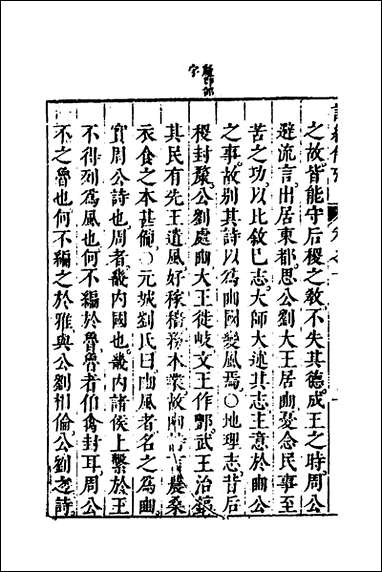 之故皆能守后稷之敎不失其德成王之時周公
避流言出居東都思公劉大王居豳憂念民事至
苦之功以比敘己志大師大述其志主意於豳公
之事故别其詩以爲豳國變風焉〇地理志昔后
稷封斄公劉處豳大王徙岐文王作酆武王治鎬
其民有先王遺風好稼穡務本業故豳詩言農桑
衣食之本甚備〇元城劉氏曰豳風者名之爲豳
實周公詩也周者畿内國也畿内諸侯上繫於王
不得列爲風也何不編於魯魯者伯禽封耳周公
不之魯也何不編之於雅與公劉相倫公劉之詩